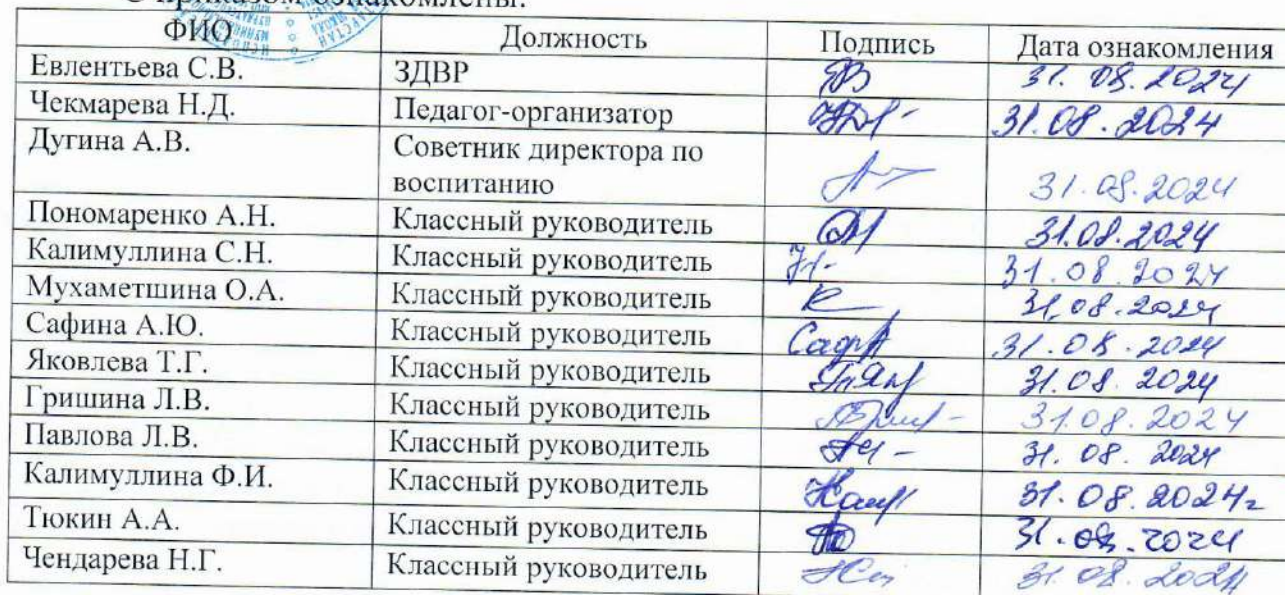 С приказом ознакомлены:
ФИО Должность Подпись Дата ознакомления
Евлентьева С.В. ЗДВР 31.08.2024
Чекмарева Н.Д. Педагог-организатор 31.08.2024
Дугина А.В. Советник директора по
воспитанию 31.08.2024
Пономаренко А.Н. Классный руководитель 31.08.2024
Калимуллина С.Н. Классный руководитель 31.08.2024
Мухаметшина О.А. Классный руководитель 31.08.2024
Сафина А.Ю. Классный руководитель 31.08.2024
Яковлева Т.Г. Классный руководитель 31.08.2024
Гришина Л.В. Классный руководитель 31.08.2024
Павлова Л.В. Классный руководитель 31.08.2024
Калимуллина Ф.И. Классный руководитель 31.08.2024г
Тюкин А.А. Классный руководитель 31.08.2024
Чендарева Н.Г. Классный руководитель 31.08.2024